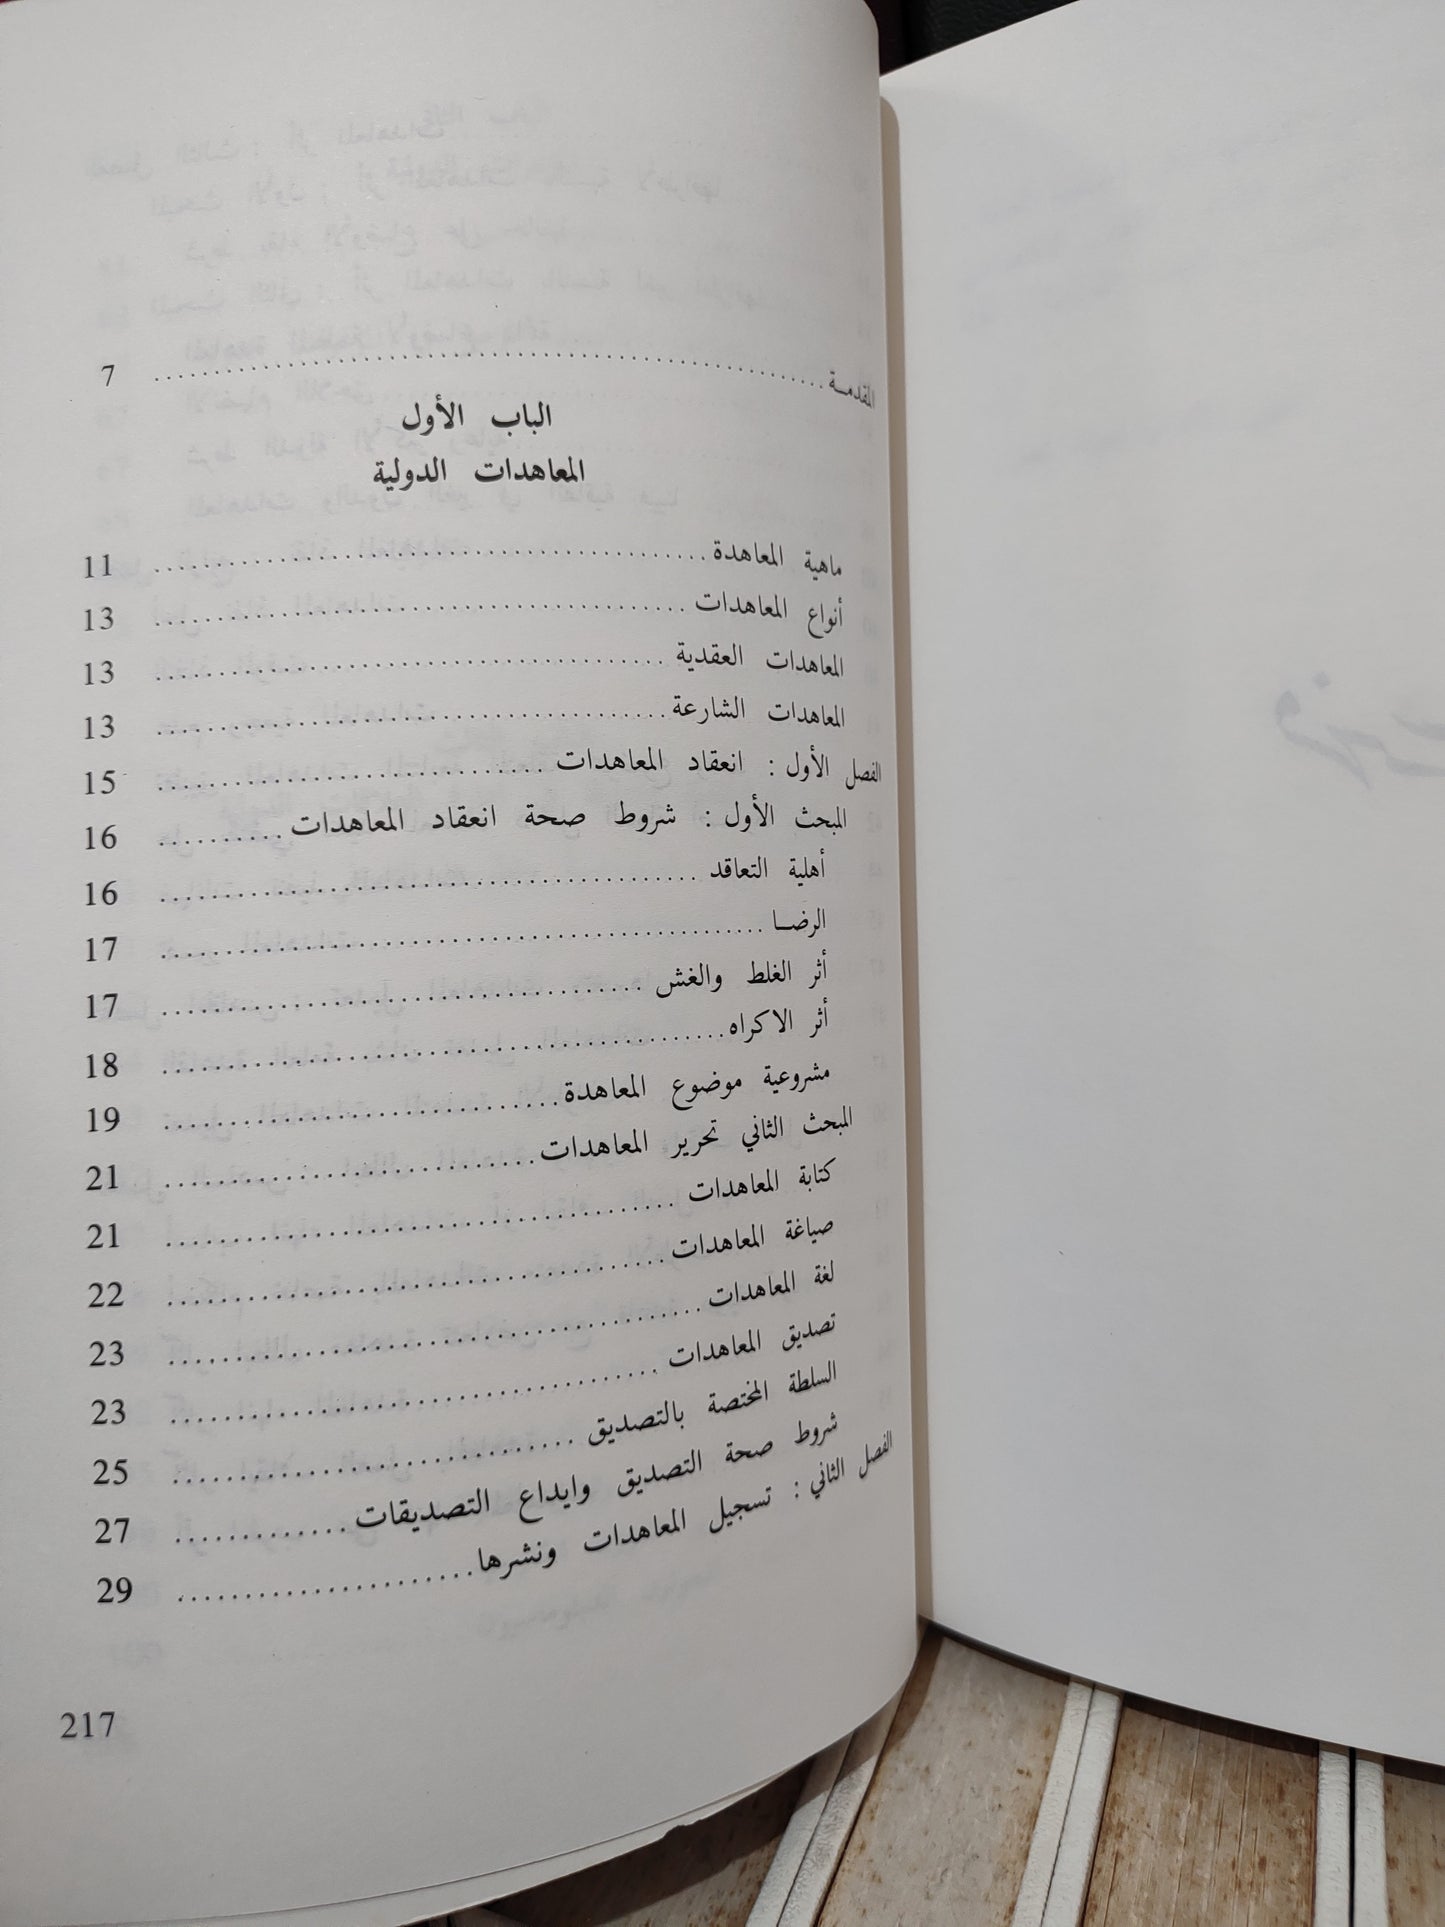 المقدمـة ........ 7
الباب الأول
المعاهدات الدولية
ماهية المعاهدة ........ 11
أنواع المعاهدات ........ 13
المعاهدات العقدية ........ 13
المعاهدات الشارعة ........ 13
الفصل الأول : انعقاد المعاهدات ........ 15
المبحث الأول : شروط صحة انعقاد المعاهدات ........ 16
أهلية التعاقد ........ 16
الرضـا ........ 17
أثر الغلط والغش ........ 17
أثر الاكراه ........ 18
مشروعية موضوع المعاهدة ........ 19
المبحث الثاني تحرير المعاهدات ........ 21
كتابة المعاهدات ........ 21
صياغة المعاهدات ........ 22
لغة المعاهدات ........ 23
تصديق المعاهدات ........ 23
السلطة المختصة بالتصديق ........ 25
شروط صحة التصديق وايداع التصديقات ........ 27
الفصل الثاني : تسجيل المعاهدات ونشرها ........ 29
217